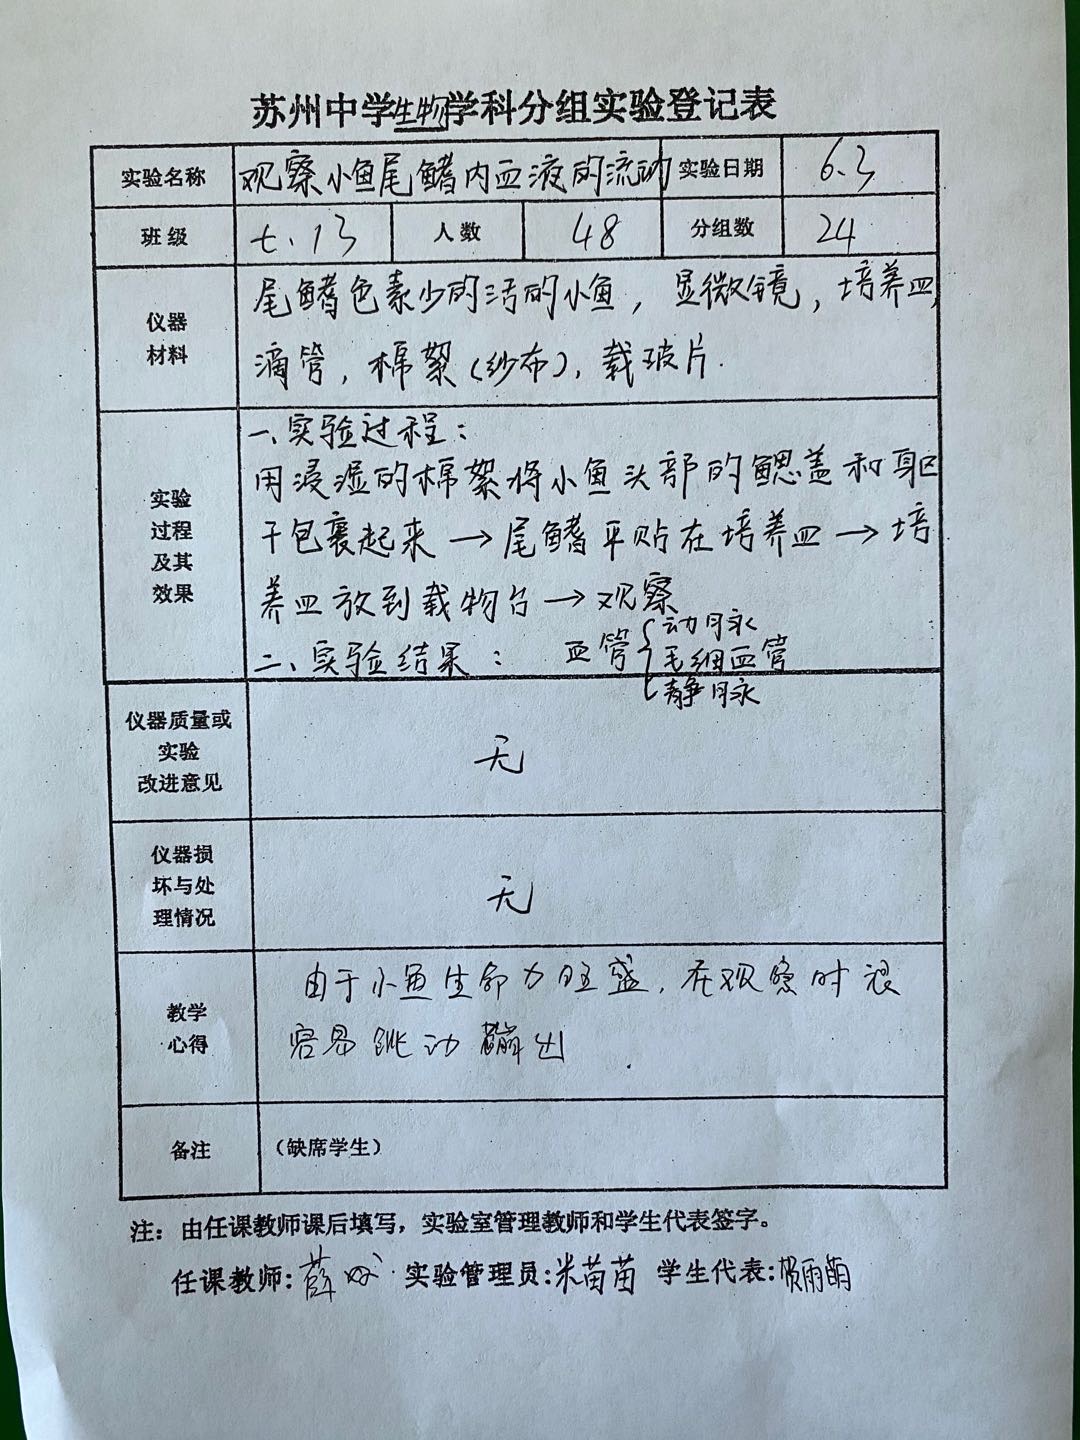 苏州中学生物学科分组实验登记表
实验名称 观察小鱼尾鳍内血液的流动 实验日期 6.3
班级 七.13 人数 48 分组数 24
仪器
材料
尾鳍色素少的活的小鱼，显微镜，培养皿，
滴管，棉絮（纱布），载玻片.
实验
过程
及其
效果
一、实验过程：
用浸湿的棉絮将小鱼头部的鳃盖和躯
干包裹起来→尾鳍平贴在培养皿→培
养皿放到载物台→观察
二、实验结果： 血管{动脉
毛细血管
静脉
仪器质量或
实验
改进意见
无
仪器损
坏与处
理情况
无
教学
心得
由于小鱼生命力旺盛，在观察时很
容易跳动蹦出.
备注 （缺席学生）
注：由任课教师课后填写，实验室管理教师和学生代表签字。
任课教师:薛 实验管理员:米苗苗 学生代表:雨萌